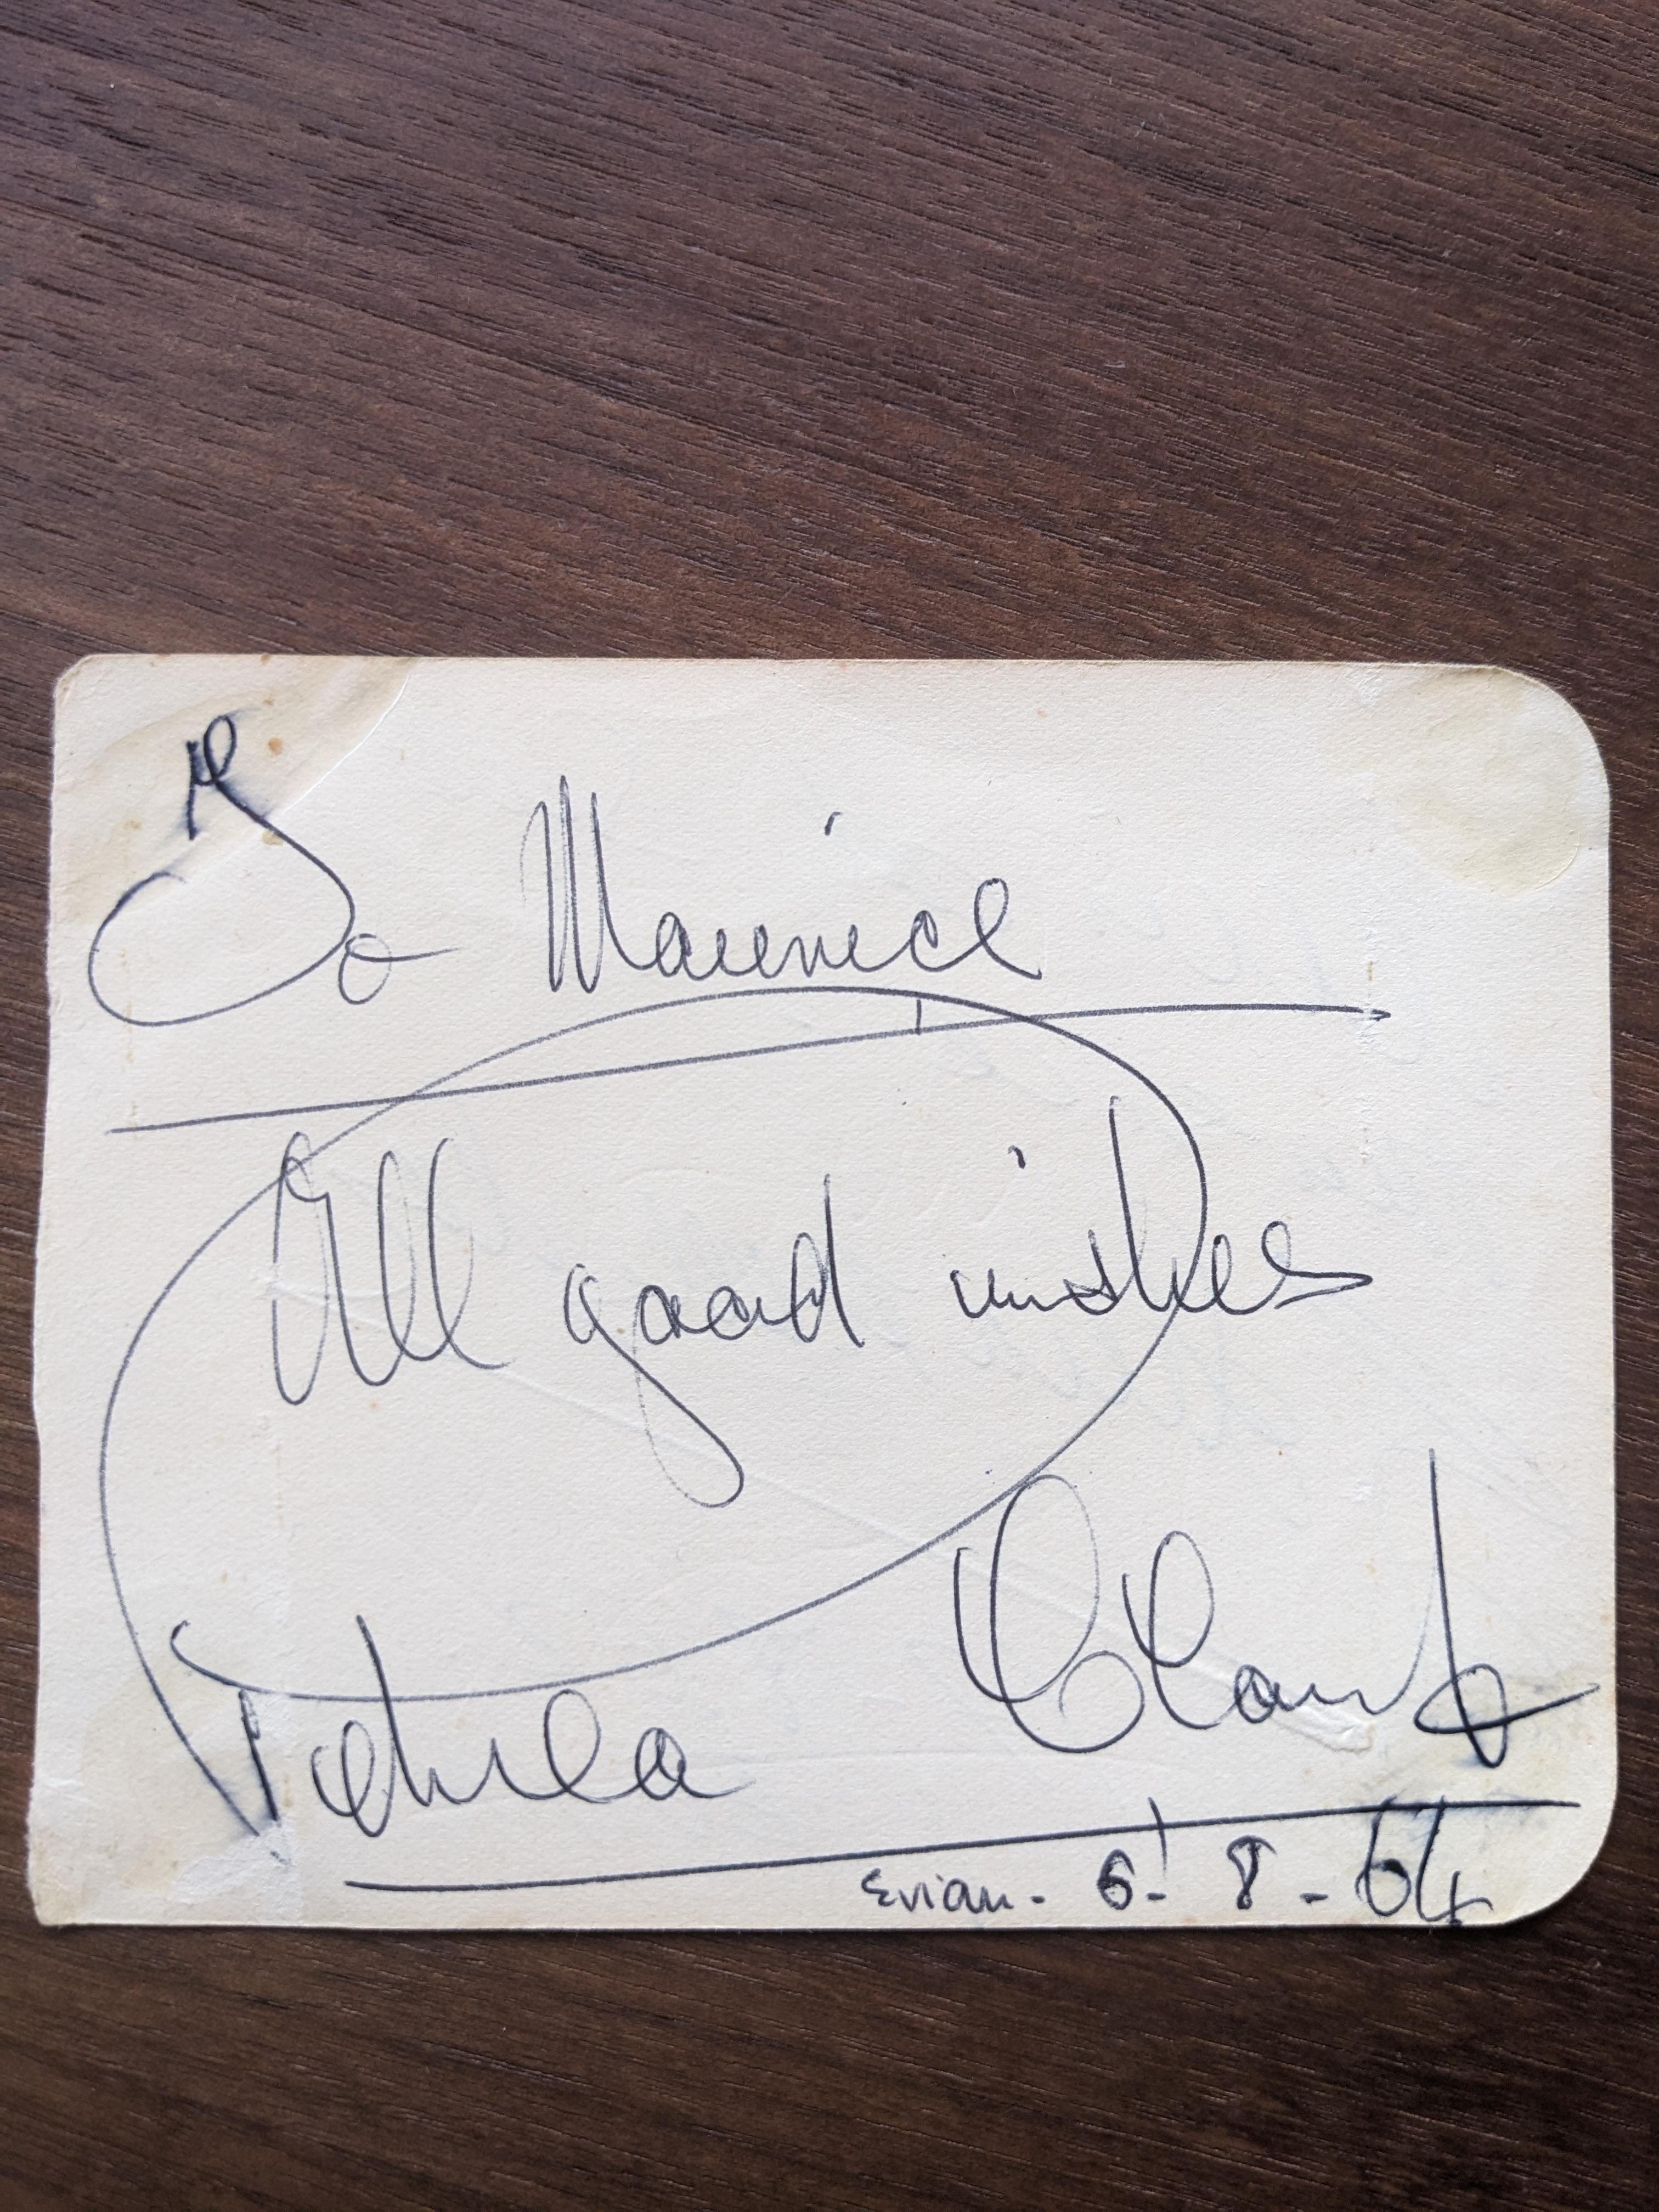 To Maurice
All good wishes
Petula Clark
Evian - 6 - 8 - 64